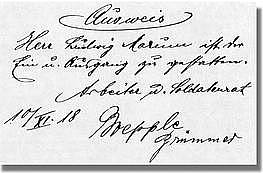 Ausweis
Herr Ludwig Marum ist der
Ein u. Ausgang zu gestatten.
Arbeiter u. Soldatenrat
10/XI. 18
Boepple
Grimmer